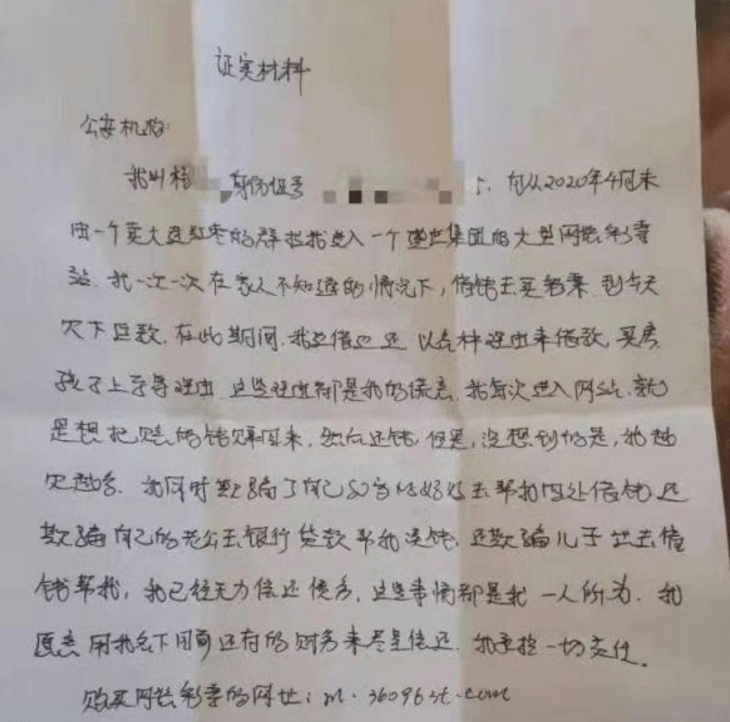 证实材料
公安机构:
我叫杨 身份证号 , 自从2020年4月末
由一个卖大 红枣的群 我进入一个 集团的大型网络彩票
站. 我一次一次在家人不知道的情况下, 借钱去买彩票. 到今天
欠下巨款. 在此期间. 我边借边还 以各种理由来借款, 买房
孩子上学等理由 这些理由都是我的谎言. 我每次进入网站. 就
是想把 的钱 回来. 然后还钱 但是, 没想到的是, 我越
欠越多. 我同时欺骗了自己 去帮我四处借钱 还
欺骗自己的老公去银行贷款帮我 钱, 还欺骗儿子 去借
钱帮我, 我已经无力偿还债务. 这些事情都是我一人所为. 我
愿意用我名下目前还有的财务来尽量偿还. 我承担一切责任.
购买网络彩票的网址: m.360963t.com